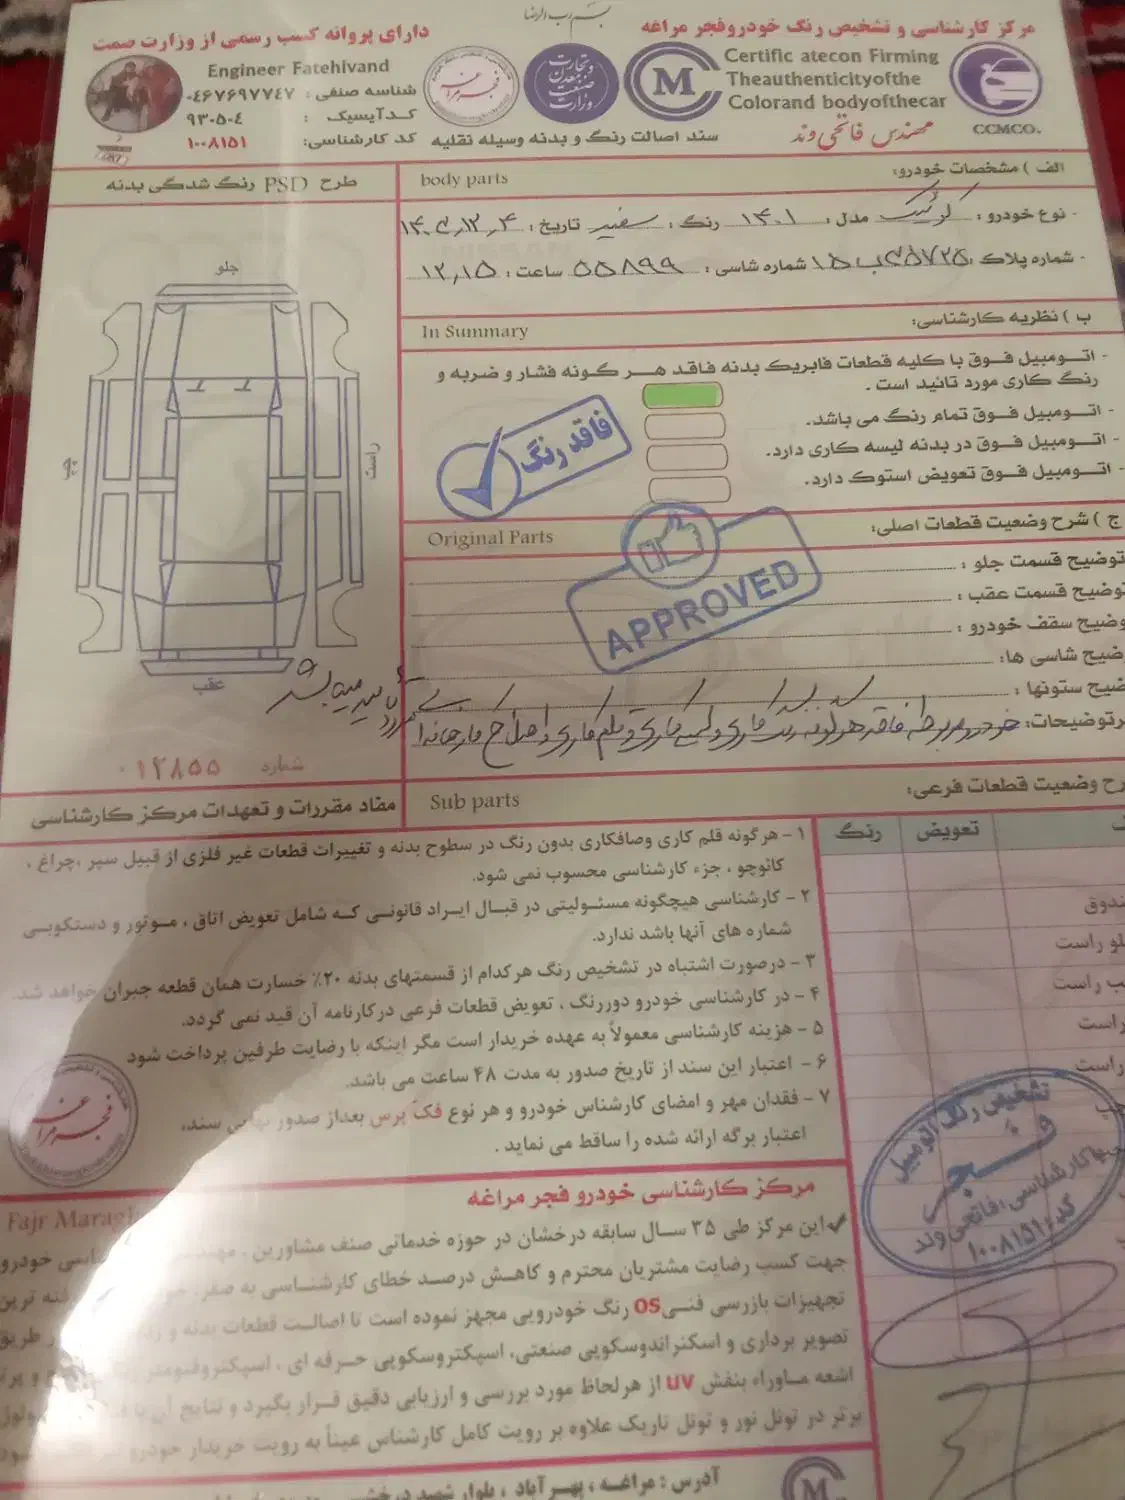 بسم رب الرضا
مرکز کارشناسی و تشخیص رنگ خودرو فجر مراغه
دارای پروانه کسب رسمی از وزارت صمت
Certific atecon Firming
Theauthenticityofthe
Colorand bodyofthecar
مهندس فاتحی وند
CCMCO.
Engineer Fatehivand
شناسه صنفی : ۰۴۶۷۶۹۷۷۴۷
کد آیسیک : ۹۳۰۵۰۴
کد کارشناسی: ۱۰۰۸۱۵۱
سند اصالت رنگ و بدنه وسیله نقلیه
وزارت صنعت معدن و تجارت
فجر مراغه
الف ) مشخصات خودرو:
body parts
طرح PSD رنگ شدگی بدنه
- نوع خودرو : کوئیک مدل : ۱۴۰۱ رنگ : سفید تاریخ : ۱۴۰۲,۱۲,۴
- شماره پلاک : ۷۲۵ ۱۵ شماره شاسی : ۵۵۸۹۹ ساعت : ۱۲,۱۵
ب ) نظریه کارشناسی:
In Summary
- اتومبیل فوق با کلیه قطعات فابریک بدنه فاقد هر گونه فشار و ضربه و
رنگ کاری مورد تائید است .
- اتومبیل فوق تمام رنگ می باشد.
- اتومبیل فوق در بدنه لیسه کاری دارد.
- اتومبیل فوق تعویض استوک دارد.
فاقد رنگ
جلو
راست
چپ
عقب
ج ) شرح وضعیت قطعات اصلی:
Original Parts
توضیح قسمت جلو :
توضیح قسمت عقب :
وضیح سقف خودرو :
ضیح شاسی ها:
ضیح ستونها :
APPROVED
رتوضیحات: خودرو مربوطه فاقد هرگونه رنگ کاری و لیسه کاری و قلم کاری و اصلاح کارخانه
تایید میباشد
شماره ۰۱۲۸۵۵
رح وضعیت قطعات فرعی:
Sub parts
مفاد مقررات و تعهدات مرکز کارشناسی
تعویض
رنگ
ندوق
لو راست
ب راست
راست
راست
۱ - هرگونه قلم کاری وصافکاری بدون رنگ در سطوح بدنه و تغییرات قطعات غیر فلزی از قبیل سپر ،چراغ ،
کائوچو ، جزء کارشناسی محسوب نمی شود.
۲ - کارشناسی هیچگونه مسئولیتی در قبال ایراد قانونی که شامل تعویض اتاق ، موتور و دستکوبی
شماره های آنها باشد ندارد.
۳ - درصورت اشتباه در تشخیص رنگ هرکدام از قسمتهای بدنه ۲۰٪ خسارت همان قطعه جبران خواهد شد.
۴ - در کارشناسی خودرو دوررنگ ، تعویض قطعات فرعی درکارنامه آن قید نمی گردد.
۵ - هزینه کارشناسی معمولاً به عهده خریدار است مگر اینکه با رضایت طرفین پرداخت شود
۶ - اعتبار این سند از تاریخ صدور به مدت ۴۸ ساعت می باشد.
۷ - فقدان مهر و امضای کارشناس خودرو و هر نوع فک پرس بعداز صدور نهایی سند،
اعتبار برگه ارائه شده را ساقط می نماید .
تشخیص رنگ اتومبیل
فجر
کارشناسی: فاتحی وند
کد: ۱۰۰۸۱۵۱
مرکز کارشناسی خودرو فجر مراغه
Fajr Maragh
این مرکز طی ۳۵ سال سابقه درخشان در حوزه خدماتی صنف مشاورین ، مهندسی خودرو
جهت کسب رضایت مشتریان محترم و کاهش درصد خطای کارشناسی به صفر، ترین
تجهیزات بازرسی فنی OS رنگ خودرویی مجهز نموده است تا اصالت قطعات بدنه و طریق
تصویر برداری و اسکنر اندوسکوپی صنعتی، اسپکتروسکوپی حرفه ای ، اسپکتروفتومتر
اشعه ماوراء بنفش UV از هرلحاظ مورد بررسی و ارزیابی دقیق قرار بگیرد و نتایج آن
برتر در تونل نور و تونل تاریک علاوه بر رویت کامل کارشناس عیناً به رویت خریدار خودرو
آدرس : مراغه ، پهر آباد ، بلوار شهید درخشی